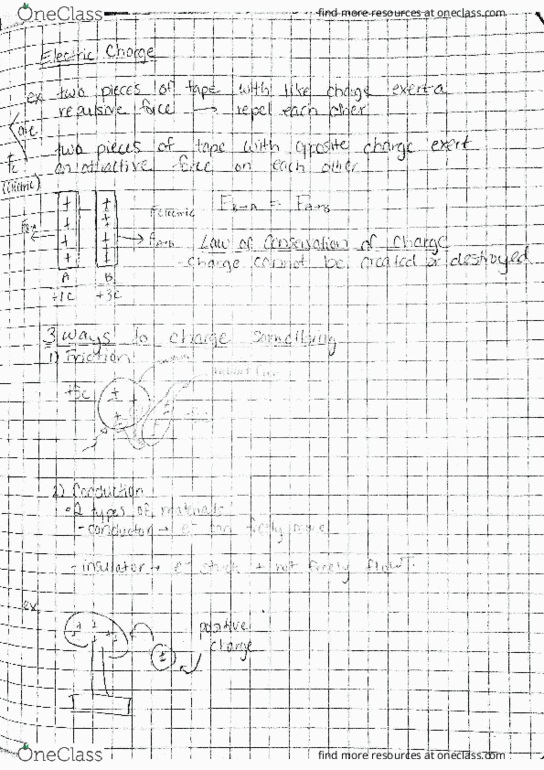 OneClass
find more resources at oneclass.com
Electric Charge
ex two pieces of tape with like charge exert a
repulsive force → repel each other
two pieces of tape with opposite charge exert
an attractive force on each other
Fe
(electric)
+ +
+ +
+ +
+ +
Felectric
FB→A = FA→B
FA→B
Law of Conservation of Charge
- charge cannot be created or destroyed
A B
+1c +3c
3 ways to charge something
1) Friction
2) Conduction
•2 types of materials
- conductor → e⁻ can freely move
- insulator → e⁻ stuck + not freely
ex
positive
charge
OneClass
find more resources at oneclass.com